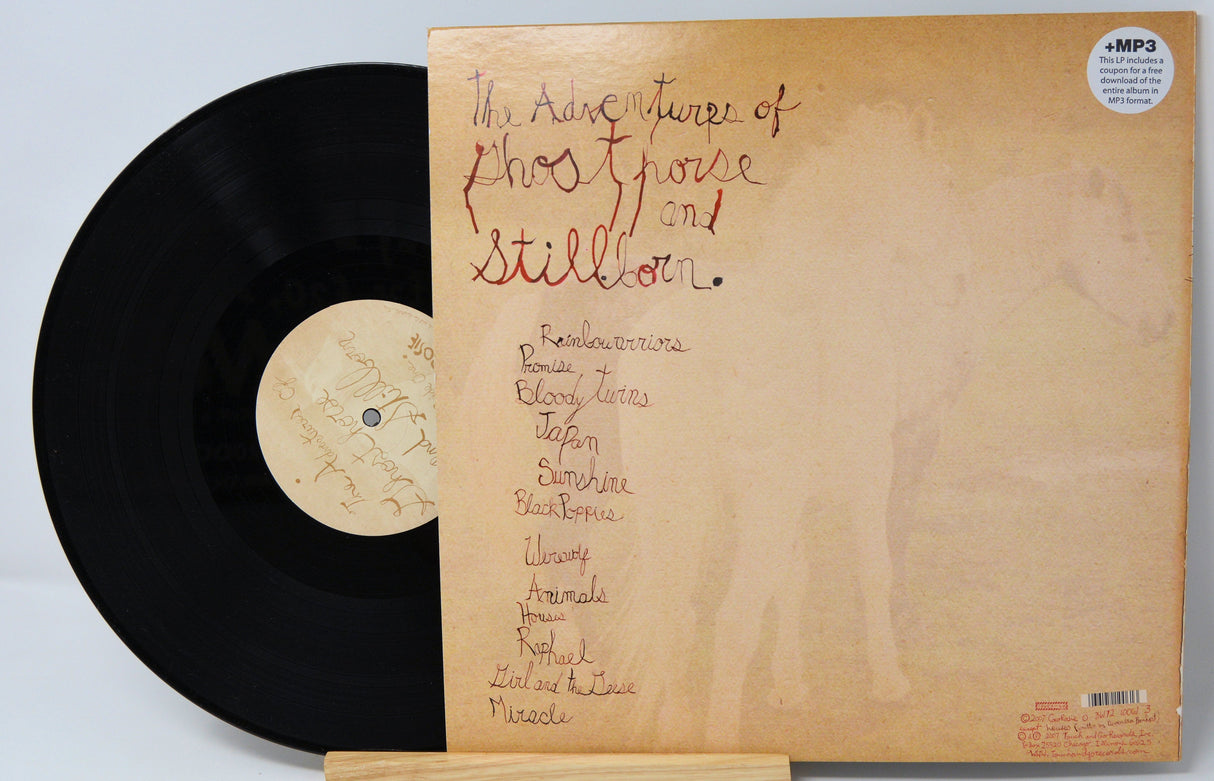 The Adventures of
Ghosthorse
and
Stillborn.
Rainbowarriors
Promise
Bloody twins
Japan
Sunshine
BlackPoppies
Werewolf
Animals
Houses
Raphael
Girl and the Geese
Miracle
+MP3
This LP includes a
coupon for a free
download of the
entire album in
MP3 format.
The Adventures of
Ghosthorse
and Stillborn
© 2007
℗ © 2007 Touch and Go Records, Inc.
Chicago, Illinois 60625
www.touchandgorecords.com